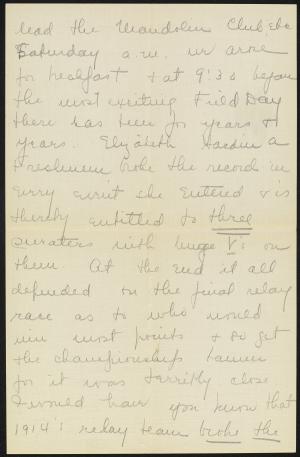 lead the Mandolin Club etc
Saturday a.m. we arose
for breakfast & at 9:30 began
the most exciting Field Day
there has been for years &
years. Elizabeth Hardin a
Freshmen broke the record in
every event she entered & is
thereby entitled to three
sweaters with huge V's on
them. At the end it all
depended on the final relay
race as to who would
win most points & so get
the championship banner
for it was terribly close
I would have you know that
1914's relay team broke the